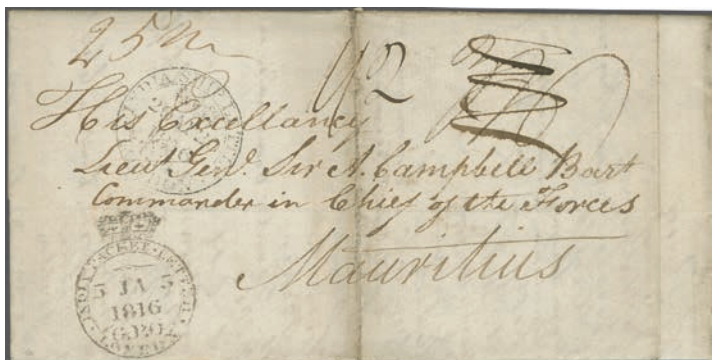 25 M
92
His Excellancy
Lieut Genl. Sir A. Campbell Bart
Commander in Chief of the Forces
Mauritius
INDIA PACKET LETTER
5 JA 5
1816
LONDON